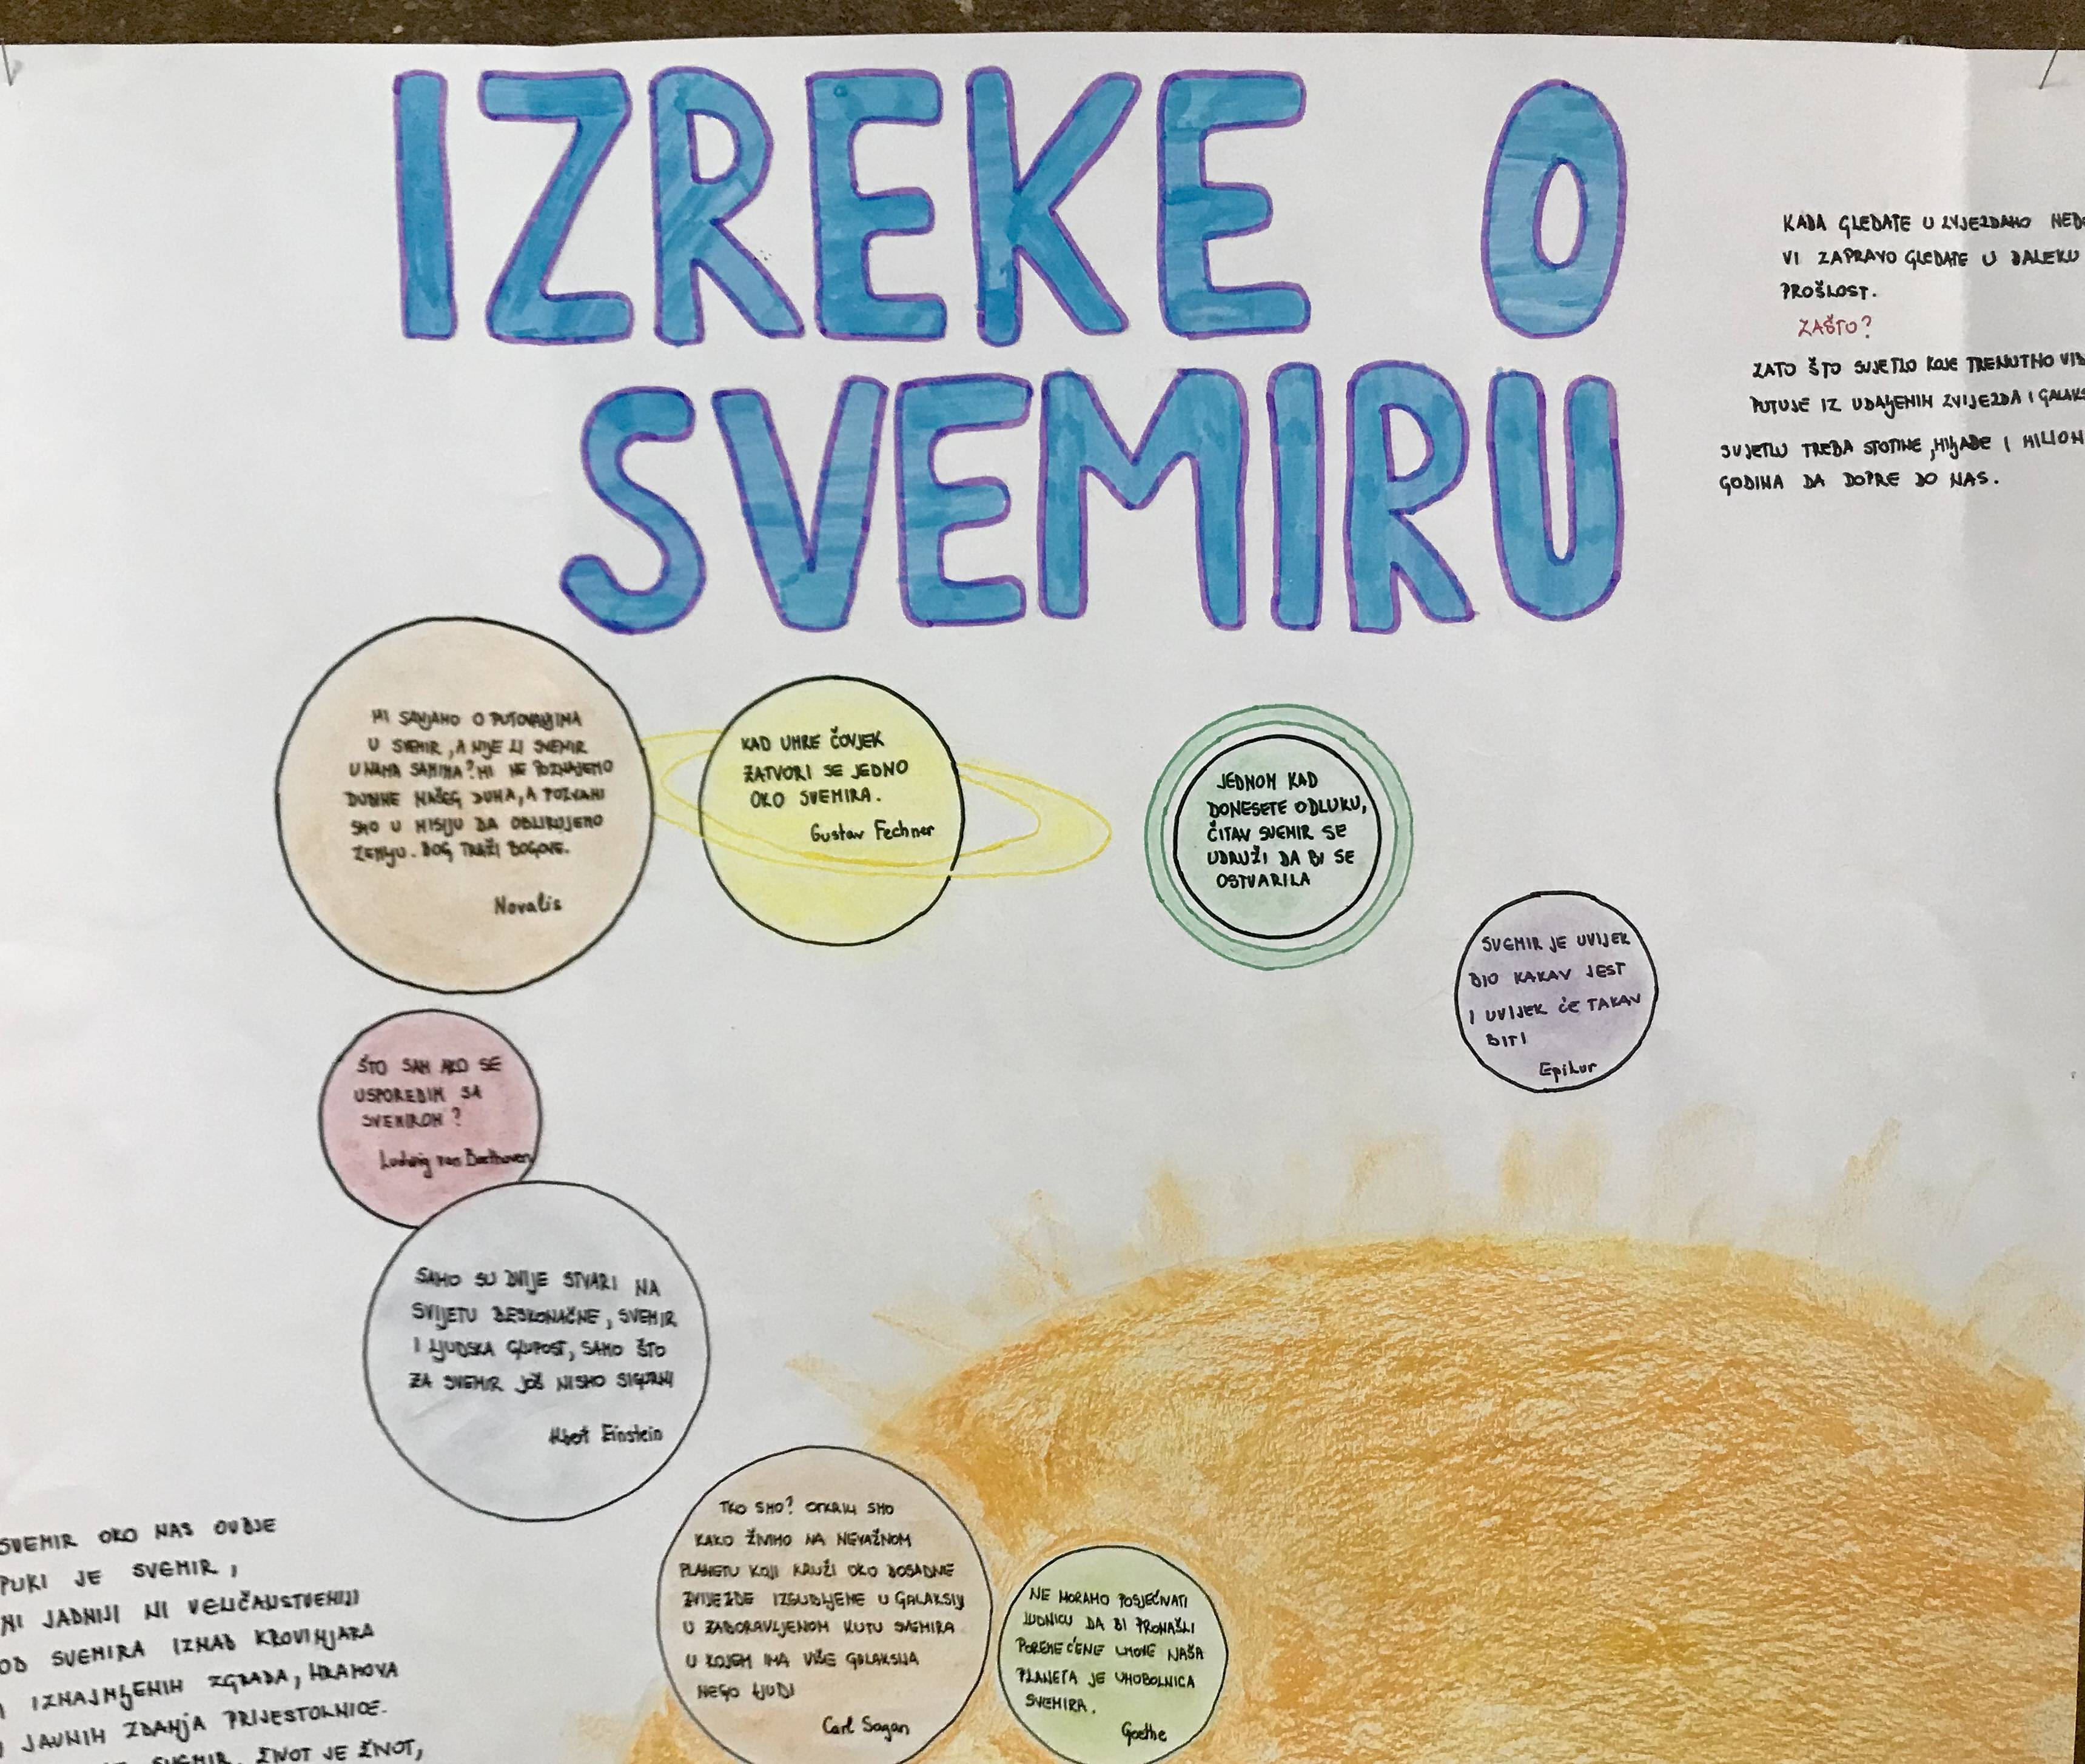 IZREKE O
SVEMIRU
KADA GLEDATE U ZVJEZDANO
VI ZAPRAVO GLEDATE U DALEKU
PROŠLOST.
ZAŠTO?
ZATO ŠTO SVJETLO KOJE TRENUTNO
PUTUJE IZ UDALJENIH ZVIJEZDA I
SVJETLU TREBA STOTINE, HILJADE I
GODINA DA DOPRE DO NAS.
MI SANJAMO O PUTOVANJIMA
U SVEMIR, A NIJE LI SVEMIR
U NAMA SAMIMA? MI NE POZNAJEMO
DUBINE NAŠEG DUHA, A POZVANI
SMO U MISIJU DA OBLIKUJEMO
ZEMLJU. BOG TRAŽI BOGOVE.
Novalis
KAD UMRE ČOVJEK
ZATVORI SE JEDNO
OKO SVEMIRA.
Gustav Fechner
JEDNOM KAD
DONESETE ODLUKU,
ČITAV SVEMIR SE
UDRUŽI DA BI SE
OSTVARILA
SVEMIR JE UVIJEK
BIO KAKAV JEST
I UVIJEK ĆE TAKAV
BITI
Epikur
ŠTO SAM AKO SE
USPOREDIM SA
SVEMIROM?
Ludwig van Beethoven
SAMO SU DVIJE STVARI NA
SVIJETU BESKONAČNE, SVEMIR
I LJUDSKA GLUPOST, SAMO ŠTO
ZA SVEMIR JOŠ NISMO SIGURNI
Albert Einstein
TKO SMO? OTKRILI SMO
KAKO ŽIVIMO NA NEVAŽNOM
PLANETU KOJI KRUŽI OKO DOSADNE
ZVIJEZDE IZGUBLJENE U GALAKSIJI
U ZABORAVLJENOM KUTU SVEMIRA
U KOJEM IMA VIŠE GALAKSIJA
NEGO LJUDI
Carl Sagan
NE MORAMO POSJEĆIVATI
LUDNICU DA BI PRONAŠLI
POREMEĆENE UMOVE NAŠA
PLANETA JE UMOBOLNICA
SVEMIRA.
Goethe
SVEMIR OKO NAS OVDJE
PUKI JE SVEMIR,
NI JADNIJI NI VELIČANSTVENIJI
OD SVEMIRA IZNAD KROVINJARA
I IZNAJMLJENIH ZGRADA, HRAMOVA
I JAVNIH ZDANJA PRIJESTOLNICE.
SVEMIR. ŽIVOT JE ŽIVOT,